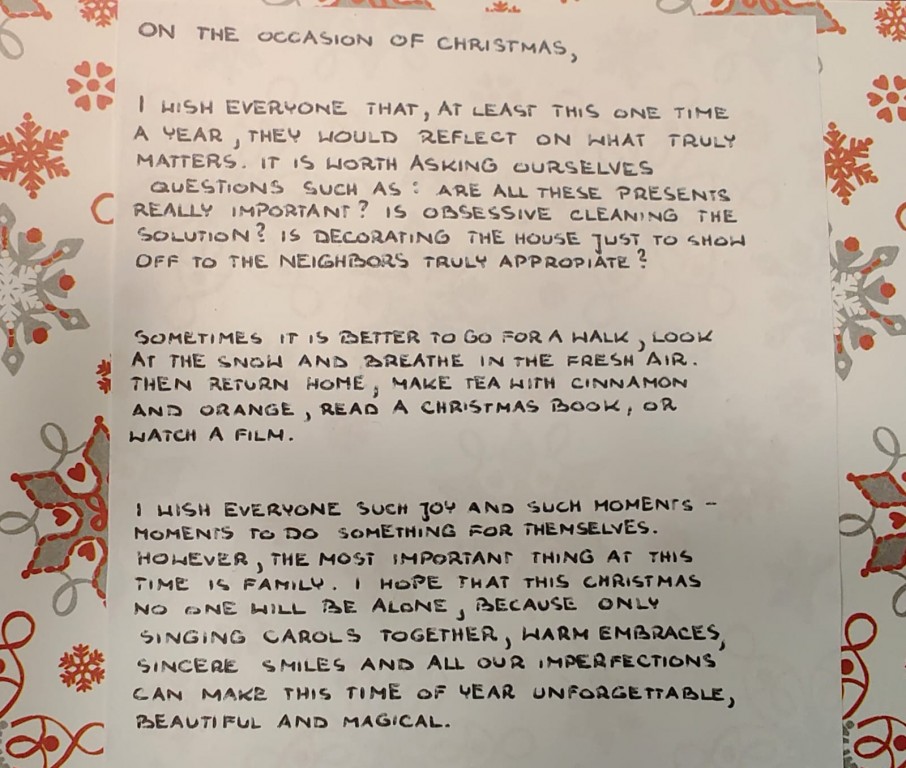 ON THE OCCASION OF CHRISTMAS,
I WISH EVERYONE THAT, AT LEAST THIS ONE TIME
A YEAR, THEY WOULD REFLECT ON WHAT TRULY
MATTERS. IT IS WORTH ASKING OURSELVES
QUESTIONS SUCH AS: ARE ALL THESE PRESENTS
REALLY IMPORTANT? IS OBSESSIVE CLEANING THE
SOLUTION? IS DECORATING THE HOUSE JUST TO SHOW
OFF TO THE NEIGHBORS TRULY APPROPIATE?
SOMETIMES IT IS BETTER TO GO FOR A WALK, LOOK
AT THE SNOW AND BREATHE IN THE FRESH AIR.
THEN RETURN HOME, MAKE TEA WITH CINNAMON
AND ORANGE, READ A CHRISTMAS BOOK, OR
WATCH A FILM.
I WISH EVERYONE SUCH JOY AND SUCH MOMENTS -
MOMENTS TO DO SOMETHING FOR THEMSELVES.
HOWEVER, THE MOST IMPORTANT THING AT THIS
TIME IS FAMILY. I HOPE THAT THIS CHRISTMAS
NO ONE WILL BE ALONE, BECAUSE ONLY
SINGING CAROLS TOGETHER, WARM EMBRACES,
SINCERE SMILES AND ALL OUR IMPERFECTIONS
CAN MAKE THIS TIME OF YEAR UNFORGETTABLE,
BEAUTIFUL AND MAGICAL.